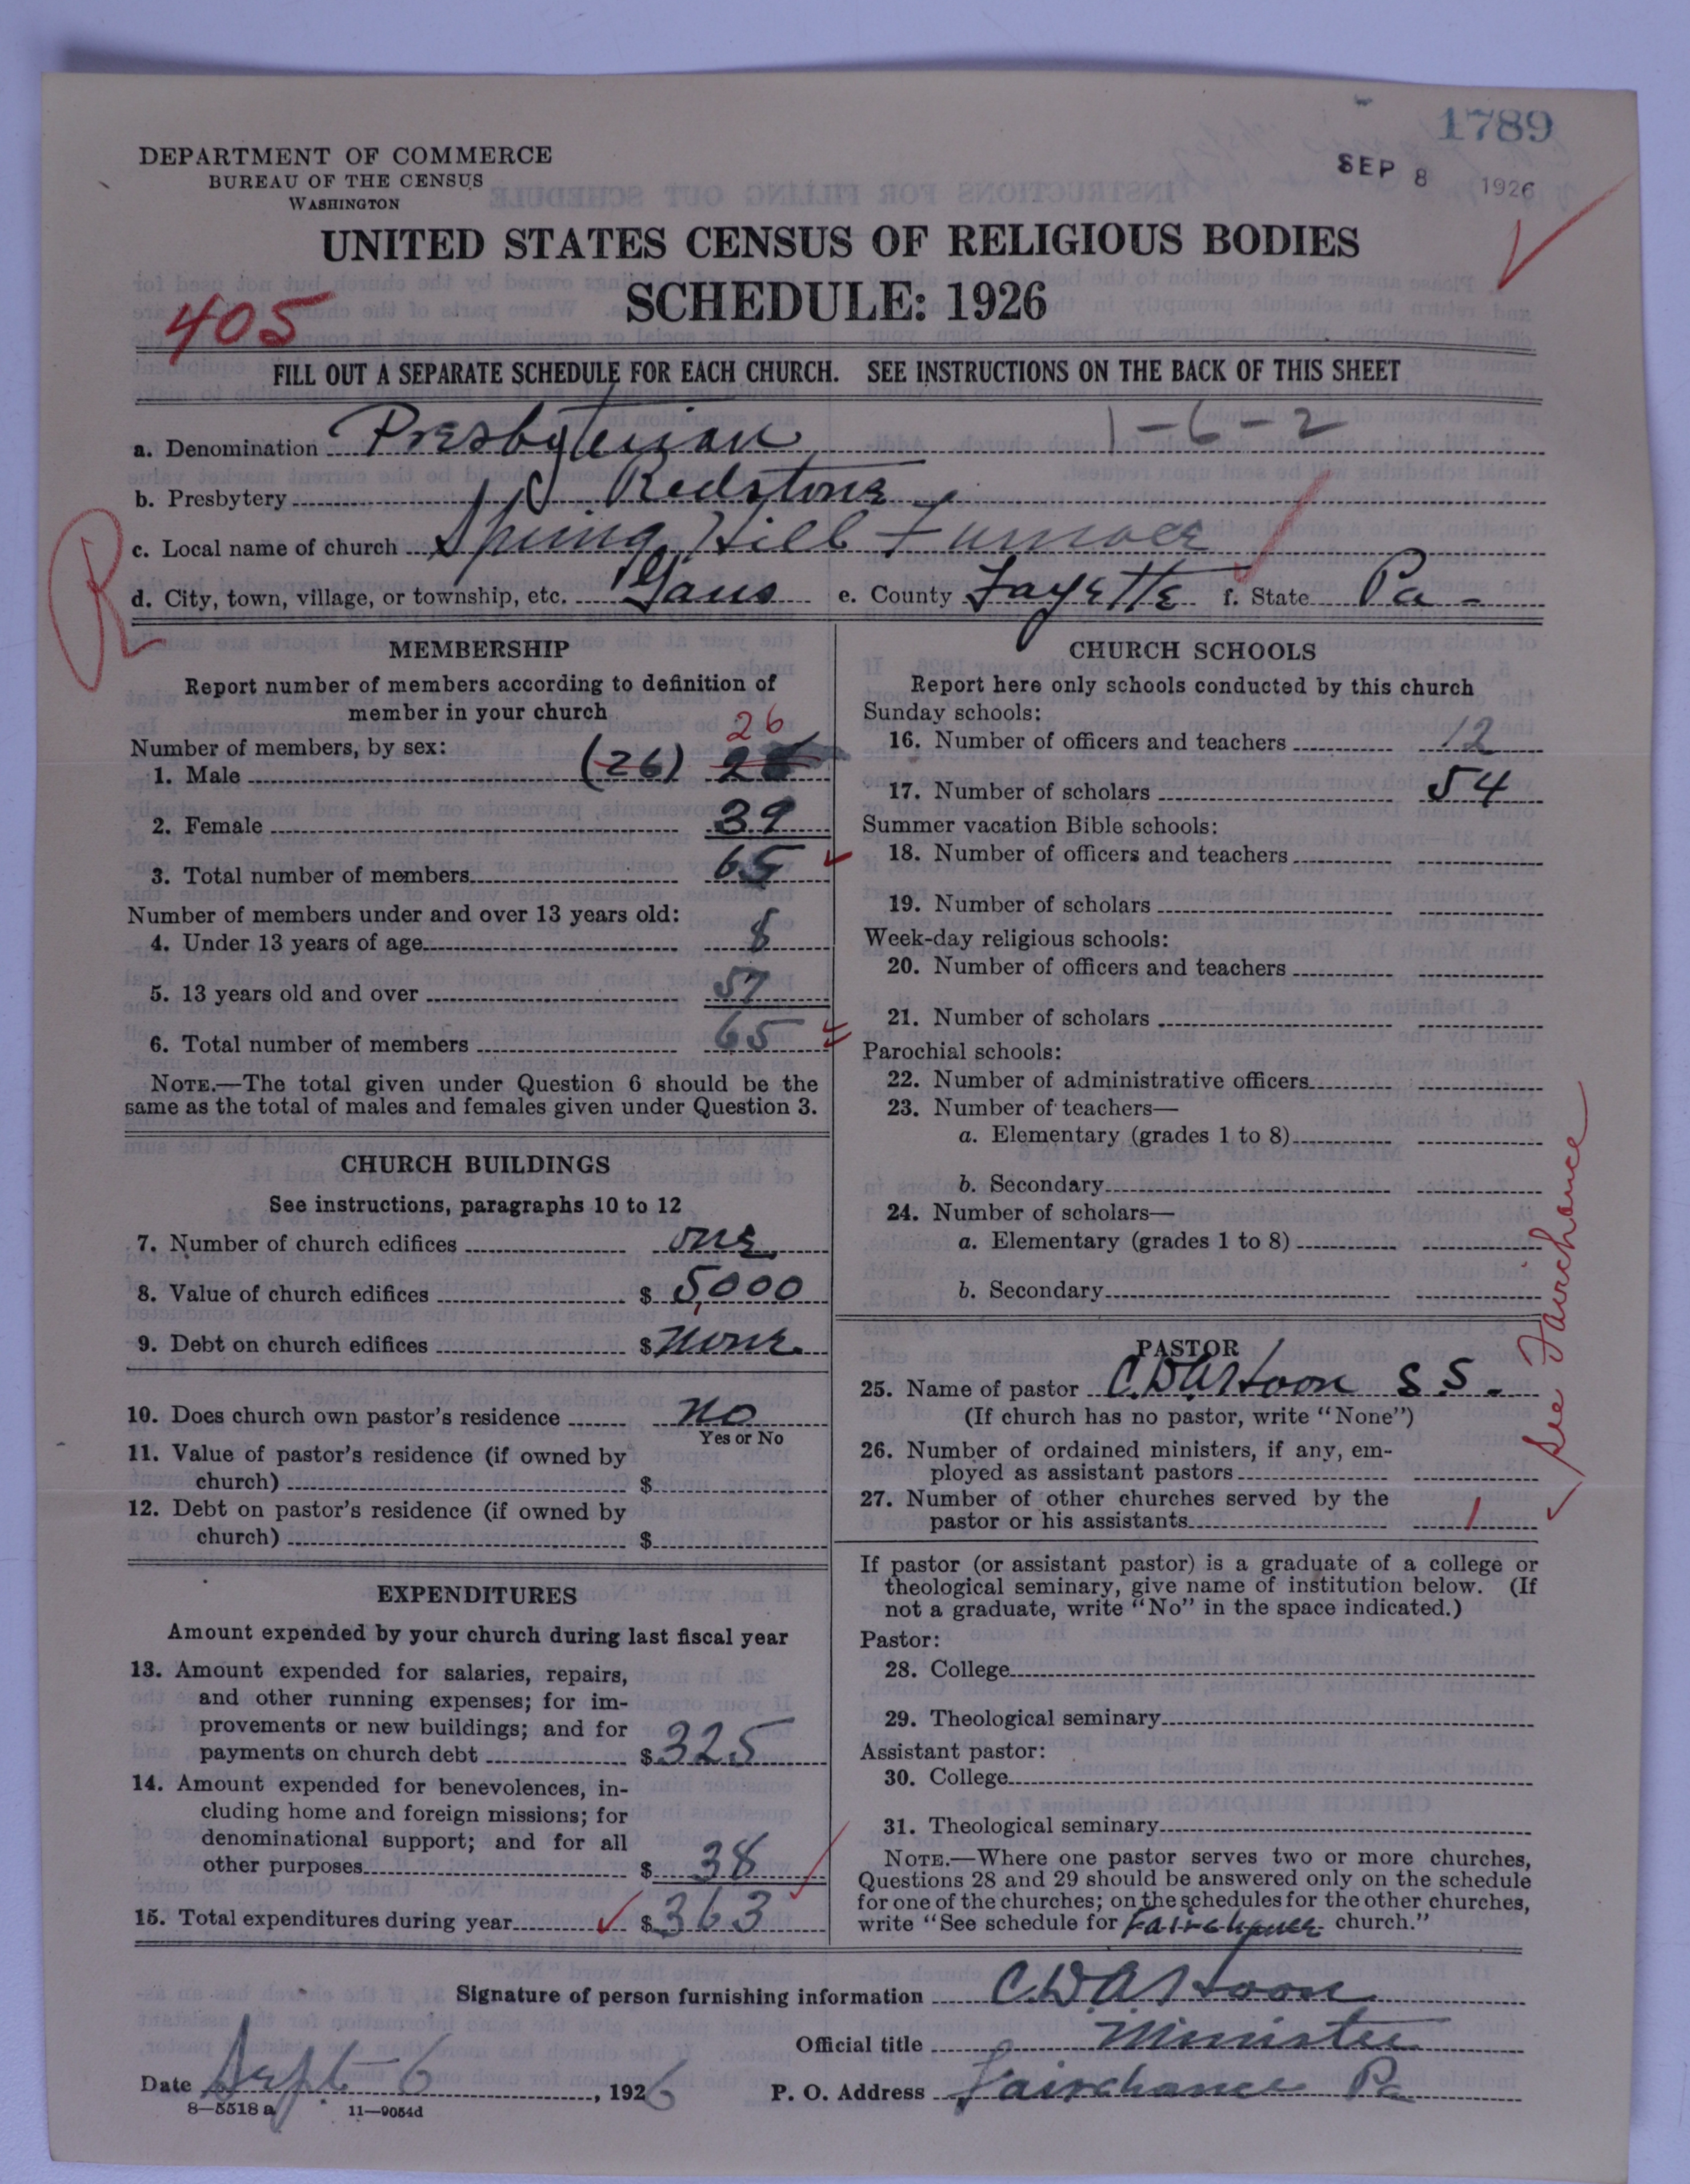 1789
SEP 8 1926
DEPARTMENT OF COMMERCE
BUREAU OF THE CENSUS
WASHINGTON
UNITED STATES CENSUS OF RELIGIOUS BODIES
SCHEDULE: 1926
405
FILL OUT A SEPARATE SCHEDULE FOR EACH CHURCH. SEE INSTRUCTIONS ON THE BACK OF THIS SHEET
1-6-2
a. Denomination Presbyterian
b. Presbytery Redstone
R
c. Local name of church Spring Hill Furnace
d. City, town, village, or township, etc. Gans e. County Fayette f. State Pa-
MEMBERSHIP
Report number of members according to definition of
member in your church
26
Number of members, by sex:
1. Male (26) 2
2. Female 39
3. Total number of members 65
Number of members under and over 13 years old:
4. Under 13 years of age 8
5. 13 years old and over 57
6. Total number of members 65
NOTE.—The total given under Question 6 should be the
same as the total of males and females given under Question 3.
CHURCH BUILDINGS
See instructions, paragraphs 10 to 12
7. Number of church edifices one
8. Value of church edifices $ 5,000
9. Debt on church edifices $ None
10. Does church own pastor's residence No
Yes or No
11. Value of pastor's residence (if owned by
church) $
12. Debt on pastor's residence (if owned by
church) $
EXPENDITURES
Amount expended by your church during last fiscal year
13. Amount expended for salaries, repairs,
and other running expenses; for im-
provements or new buildings; and for
payments on church debt $ 325
14. Amount expended for benevolences, in-
cluding home and foreign missions; for
denominational support; and for all
other purposes $ 38
15. Total expenditures during year $ 363
CHURCH SCHOOLS
Report here only schools conducted by this church
Sunday schools:
16. Number of officers and teachers 12
17. Number of scholars 54
Summer vacation Bible schools:
18. Number of officers and teachers
19. Number of scholars
Week-day religious schools:
20. Number of officers and teachers
21. Number of scholars
Parochial schools:
22. Number of administrative officers
23. Number of teachers—
a. Elementary (grades 1 to 8)
b. Secondary
24. Number of scholars—
a. Elementary (grades 1 to 8)
b. Secondary
See Fairchance
PASTOR
25. Name of pastor C.D.A. Hoon S S.
(If church has no pastor, write "None")
26. Number of ordained ministers, if any, em-
ployed as assistant pastors
27. Number of other churches served by the
pastor or his assistants 1
If pastor (or assistant pastor) is a graduate of a college or
theological seminary, give name of institution below. (If
not a graduate, write "No" in the space indicated.)
Pastor:
28. College
29. Theological seminary
Assistant pastor:
30. College
31. Theological seminary
NOTE.—Where one pastor serves two or more churches,
Questions 28 and 29 should be answered only on the schedule
for one of the churches; on the schedules for the other churches,
write "See schedule for Fairchance church."
Signature of person furnishing information C.D.A. Hoon
Official title Minister
Date Sept-6, 1926 P. O. Address Fairchance Pa
8—5518 a 11—9054d